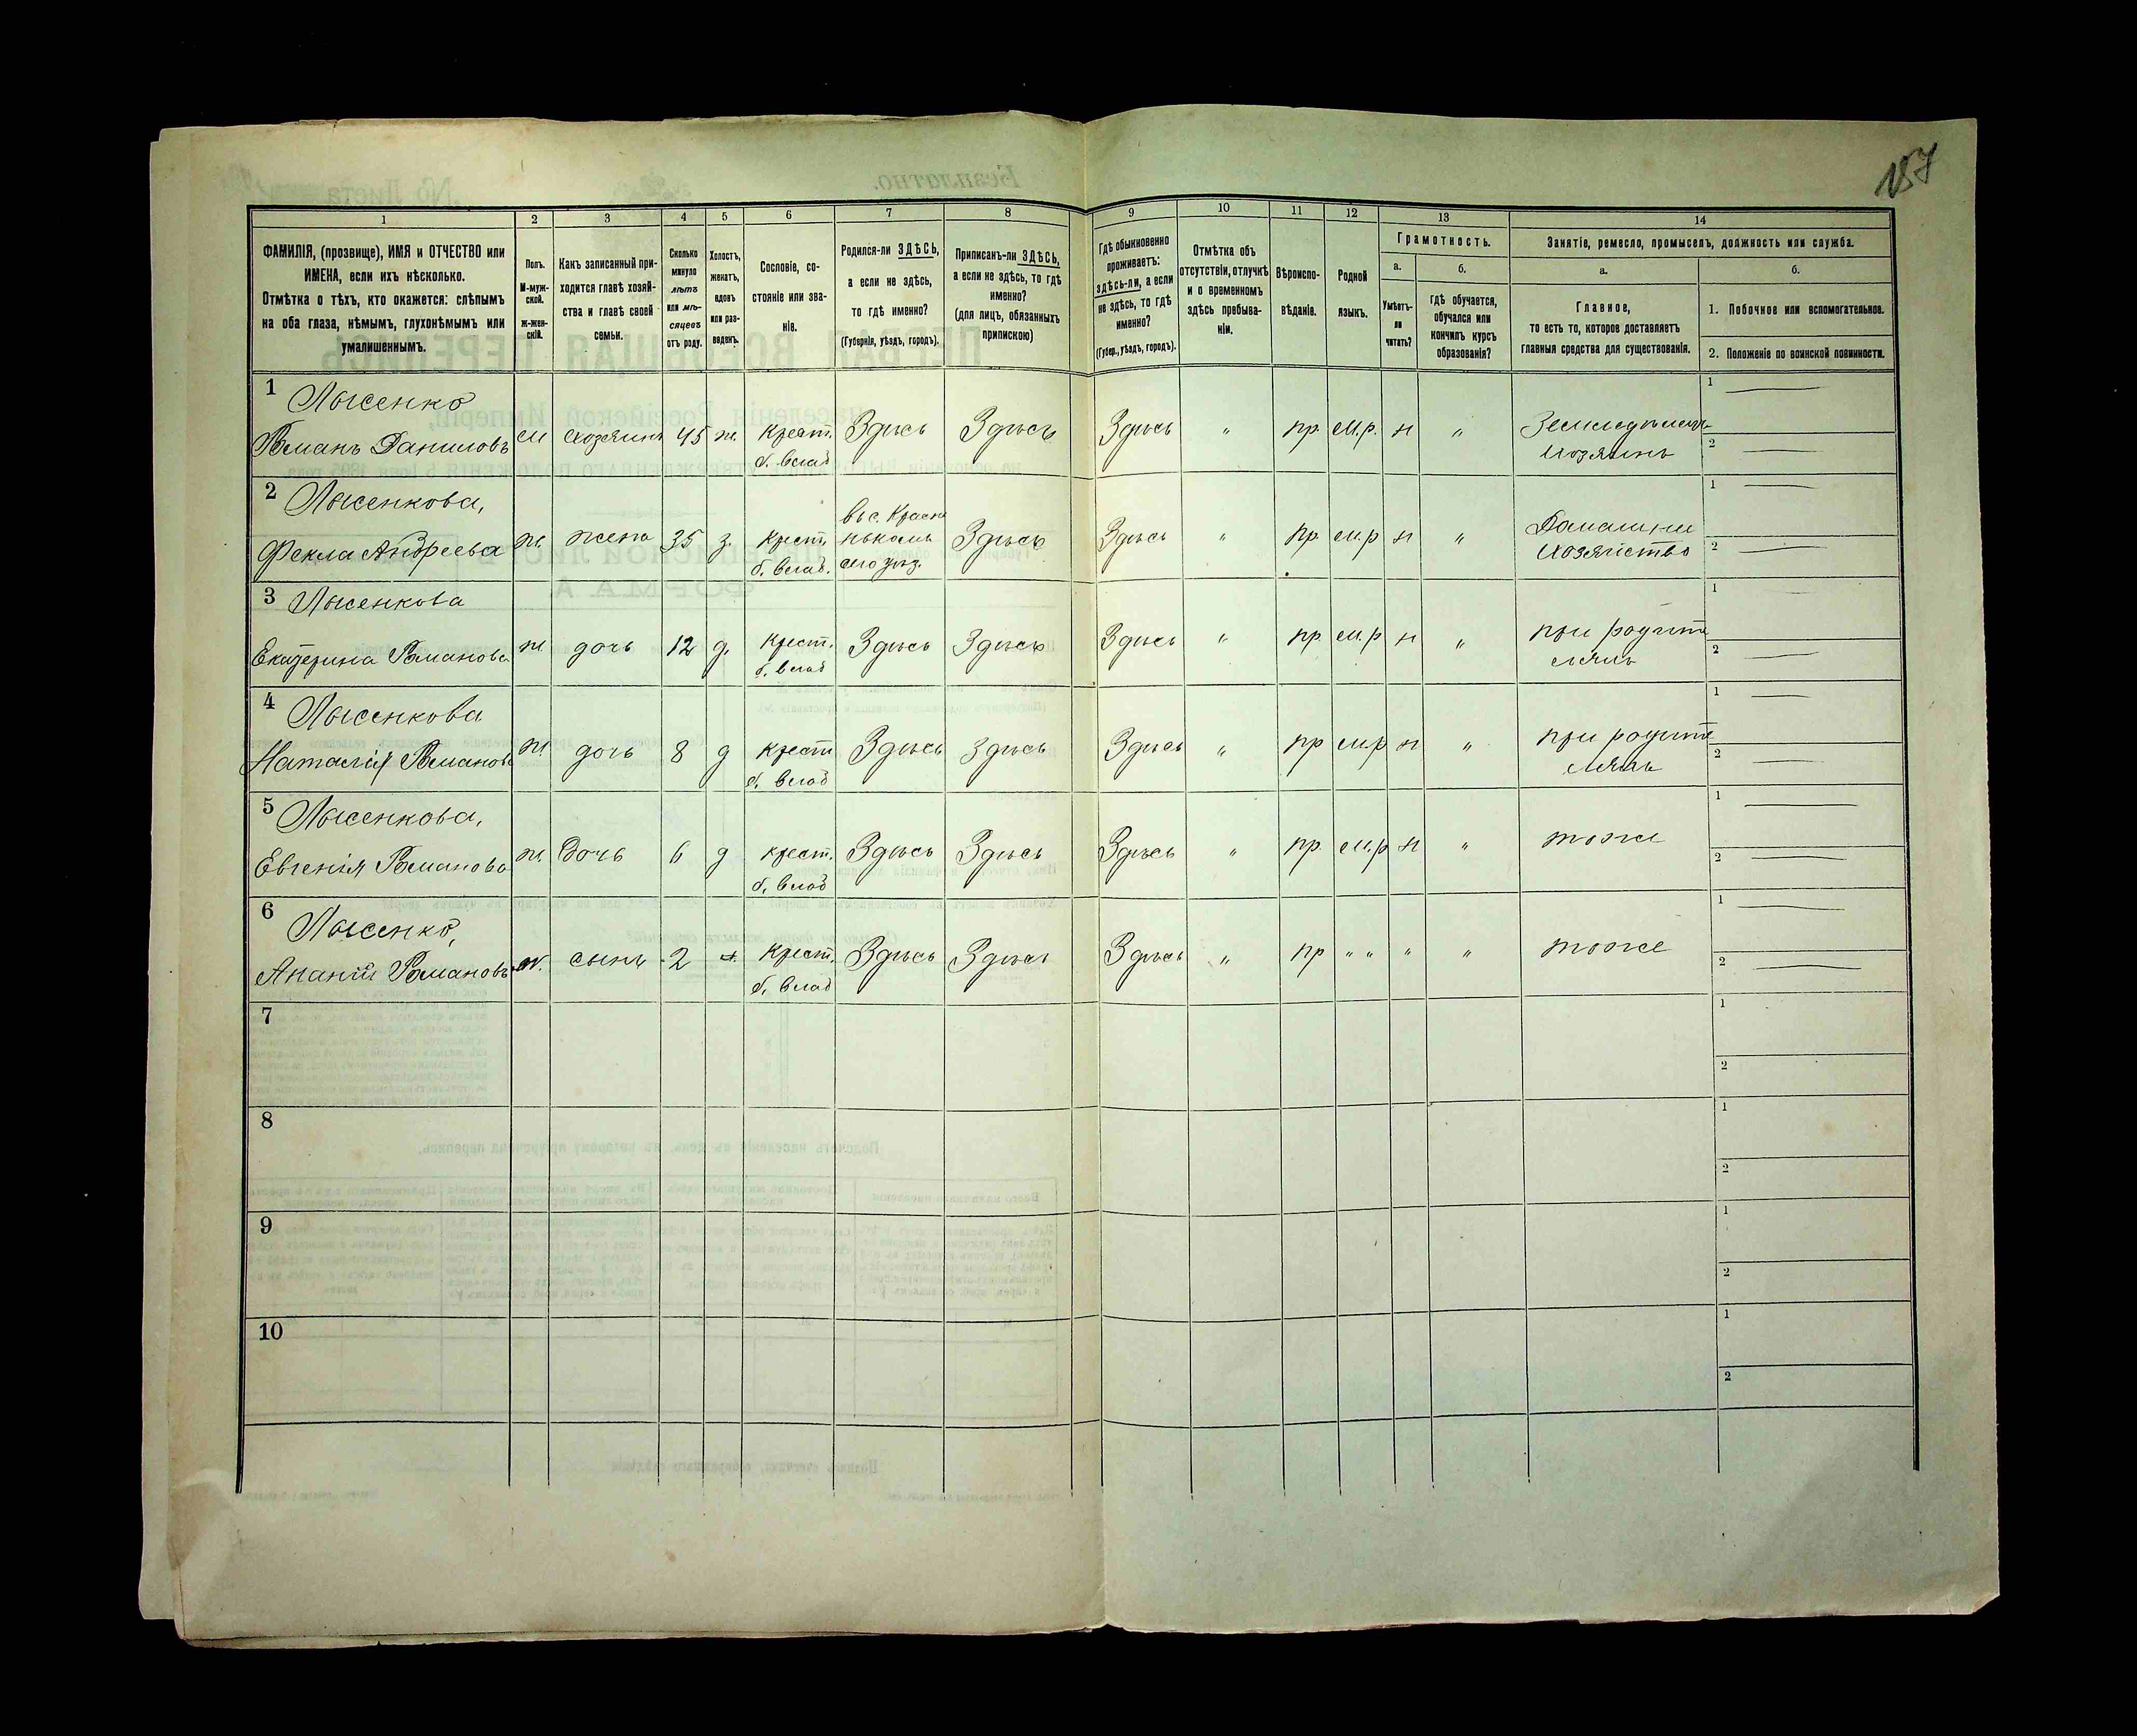 157
1 2 3 4 5 6 7 8 9 10 11 12 13 14
ФАМИЛІЯ, (прозвище), ИМЯ и ОТЧЕСТВО или
ИМЕНА, если ихъ нѣсколько.
Отмѣтка о тѣхъ, кто окажется: слѣпымъ
на оба глаза, нѣмымъ, глухонѣмымъ или
умалишеннымъ.
Полъ.
М-муж-
ской.
ж-жен-
скій.
Какъ записанный при-
ходится главѣ хозяй-
ства и главѣ своей
семьи.
Сколько
минуло
лѣтъ
или мѣ-
сяцевъ
отъ роду.
Холостъ,
женатъ,
вдовъ
или раз-
веденъ.
Сословіе, со-
стояніе или зва-
ніе.
Родился-ли ЗДѢСЬ,
а если не здѣсь,
то гдѣ именно?
(Губернія, уѣздъ, городъ).
Приписанъ-ли ЗДѢСЬ,
а если не здѣсь, то гдѣ
именно?
(для лицъ, обязанныхъ
припискою)
Гдѣ обыкновенно
проживаетъ:
здѣсь-ли, а если
не здѣсь, то гдѣ
именно?
(Губер., уѣздъ, городъ).
Отмѣтка объ
отсутствіи, отлучкѣ
и о временномъ
здѣсь пребыва-
ніи.
Вѣроиспо-
вѣданіе.
Родной
языкъ.
Грамотность.
а.
Умѣетъ-
ли
читать?
б.
Гдѣ обучается,
обучался или
кончилъ курсъ
образованія?
Занятіе, ремесло, промыселъ, должность или служба.
а.
Главное,
то есть то, которое доставляетъ
главныя средства для существованія.
б.
1. Побочное или вспомогательное.
2. Положеніе по воинской повинности.
1 Лысенко
Романъ Даниловъ м хозяинъ 45 ж. крест. Здѣсь Здѣсь Здѣсь " пр. м.р. н " Земледѣлецъ
б. влад хозяинъ
1
2
2 Лысенкова,
Фекла Андреева ж. жена 35 з. крест. Здѣсь Здѣсь " пр. м.р н " Домашнее
б. влад. хозяйство
1
2
3 Лысенкова
Екатерина Романова ж дочь 12 д. крест. Здѣсь Здѣсь Здѣсь " пр. м.р н " при родите
б. влад ляхъ
1
2
4 Лысенкова
Наталія Романова ж. дочь 8 д крест Здѣсь Здѣсь Здѣсь " пр м.р н " при родите
б. влад ляхъ
1
2
5 Лысенкова,
Евгенія Романова ж. дочь 6 д крест. Здѣсь Здѣсь Здѣсь " пр. м.р н " тоже
б. влад
1
2
6 Лысенко,
Ананій Романовъ м. сынъ 2 х. крест. Здѣсь Здѣсь Здѣсь " пр " " " " тоже
б. влад
1
2
7
1
2
8
1
2
9
1
2
10
1
2